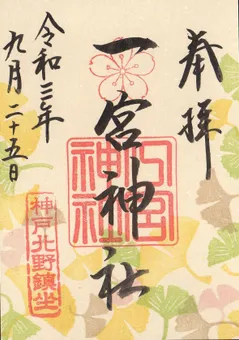 奉拝
一宮神社
令和三年
九月二十五日
一宮
神社
神戸北野鎮坐